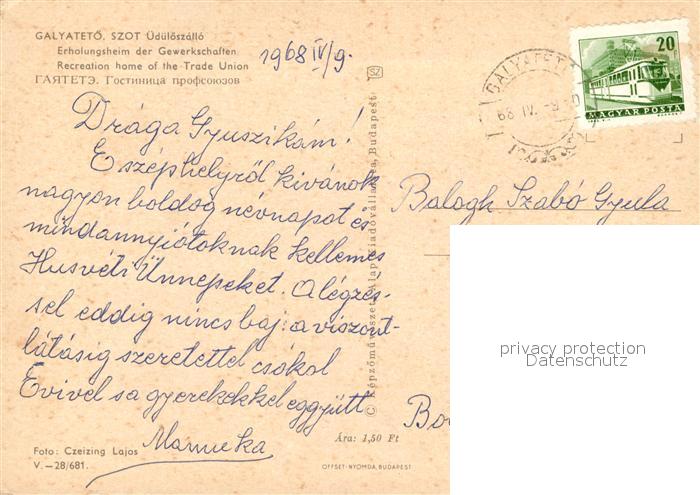 GALYATETŐ, SZOT Üdülőszálló
Erholungsheim der Gewerkschaften
Recreation home of the Trade Union
ГАЯТЕТЭ. Гостиница профсоюзов
1968 IV/9.
Drága Gyuszikám!
E széphelyről kivánok
nagyon boldog névnapot és
mindannyiótoknak kellemes
Husvéti Ünnepeket. A légzés-
sel eddig nincs baj: a viszont-
látásig szeretettel csókol
Évivel s a gyerekekkel eggyütt
Mamuska
Foto: Czeizing Lajos
V.—28/681.
SZ
© Képzőművészeti Alap Kiadóvállalata, Budapest
Ára: 1,50 Ft
OFFSET-NYOMDA, BUDAPEST
20
MAGYAR POSTA
GALYATET
68 IV. -9
Balogh Szabó Gyula
privacy protection
Datenschutz